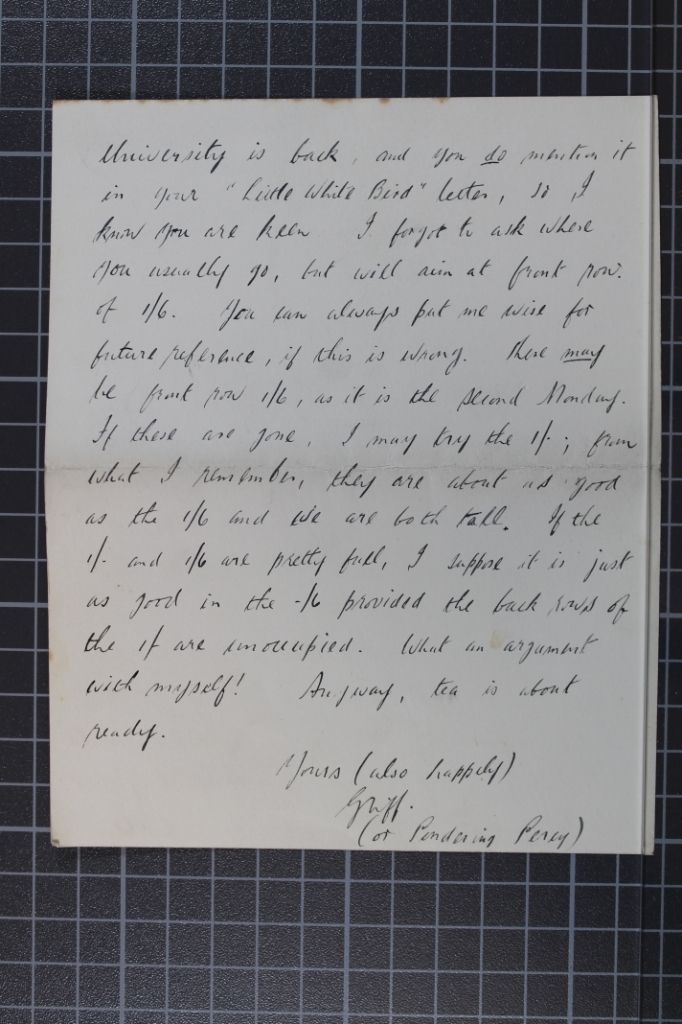 University is back, and you do mention it
in your "Little White Bird" letter, so I
know you are keen. I forgot to ask where
you usually go, but will aim at front row
of 1/6. You can always put me wise for
future reference, if this is wrong. There may
be front row 1/6, as it is the second Monday.
If these are gone, I may try the 1/-; from
what I remember, they are about as good
as the 1/6 and we are both tall. If the
1/- and 1/6 are pretty full, I suppose it is just
as good in the -/6 provided the back rows of
the 1/- are unoccupied. What an argument
with myself! Anyway, tea is about
ready.
Yours (also happily)
Griff.
(or Pondering Percy)